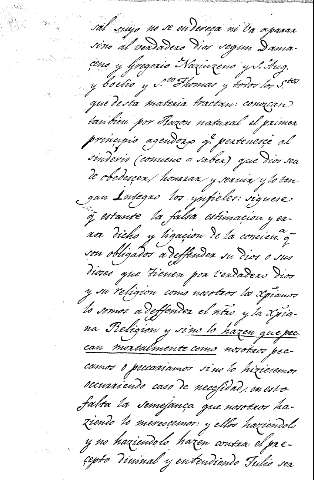 sal suyo no se endereça ni va a parar
sino al verdadero dios segun Damas-
ceno y Gregorio Nazianzeno y S. Aug.
y boeçio y S.to Thomas y todos los S.tos
que desta materia tractan: conoscen
tambien por Razon natural el primer
principio agendorũ q.e pertenesce al
sinderis (conviene a saber) que dios sea
de obedescer, honrar y servir y lo ten-
gan Integro los ynfieles: siguese
q̃ estante la falsa estimacion y er-
ror dicho y ligacion de la concien.a q̃
son obligados a deffender su dios o sus
dioses que tienen por verdadero Dios
y su religion como nosotros los xp̃ianos
lo somos a deffender el nr̃o y la xp̃ia-
na Religion y si no lo hazen que pec-
can mortalmente como nosotros pec-
camos o peccariamos si no lo hiziesemos
occurriendo caso de necesidad; en esto
falta la semejança que nosotros ha-
ziendo lo merescemos; y ellos haziendolo
y no haziendolo hazen contra el pre-
cepto divinal y entendiendo Tulio sea